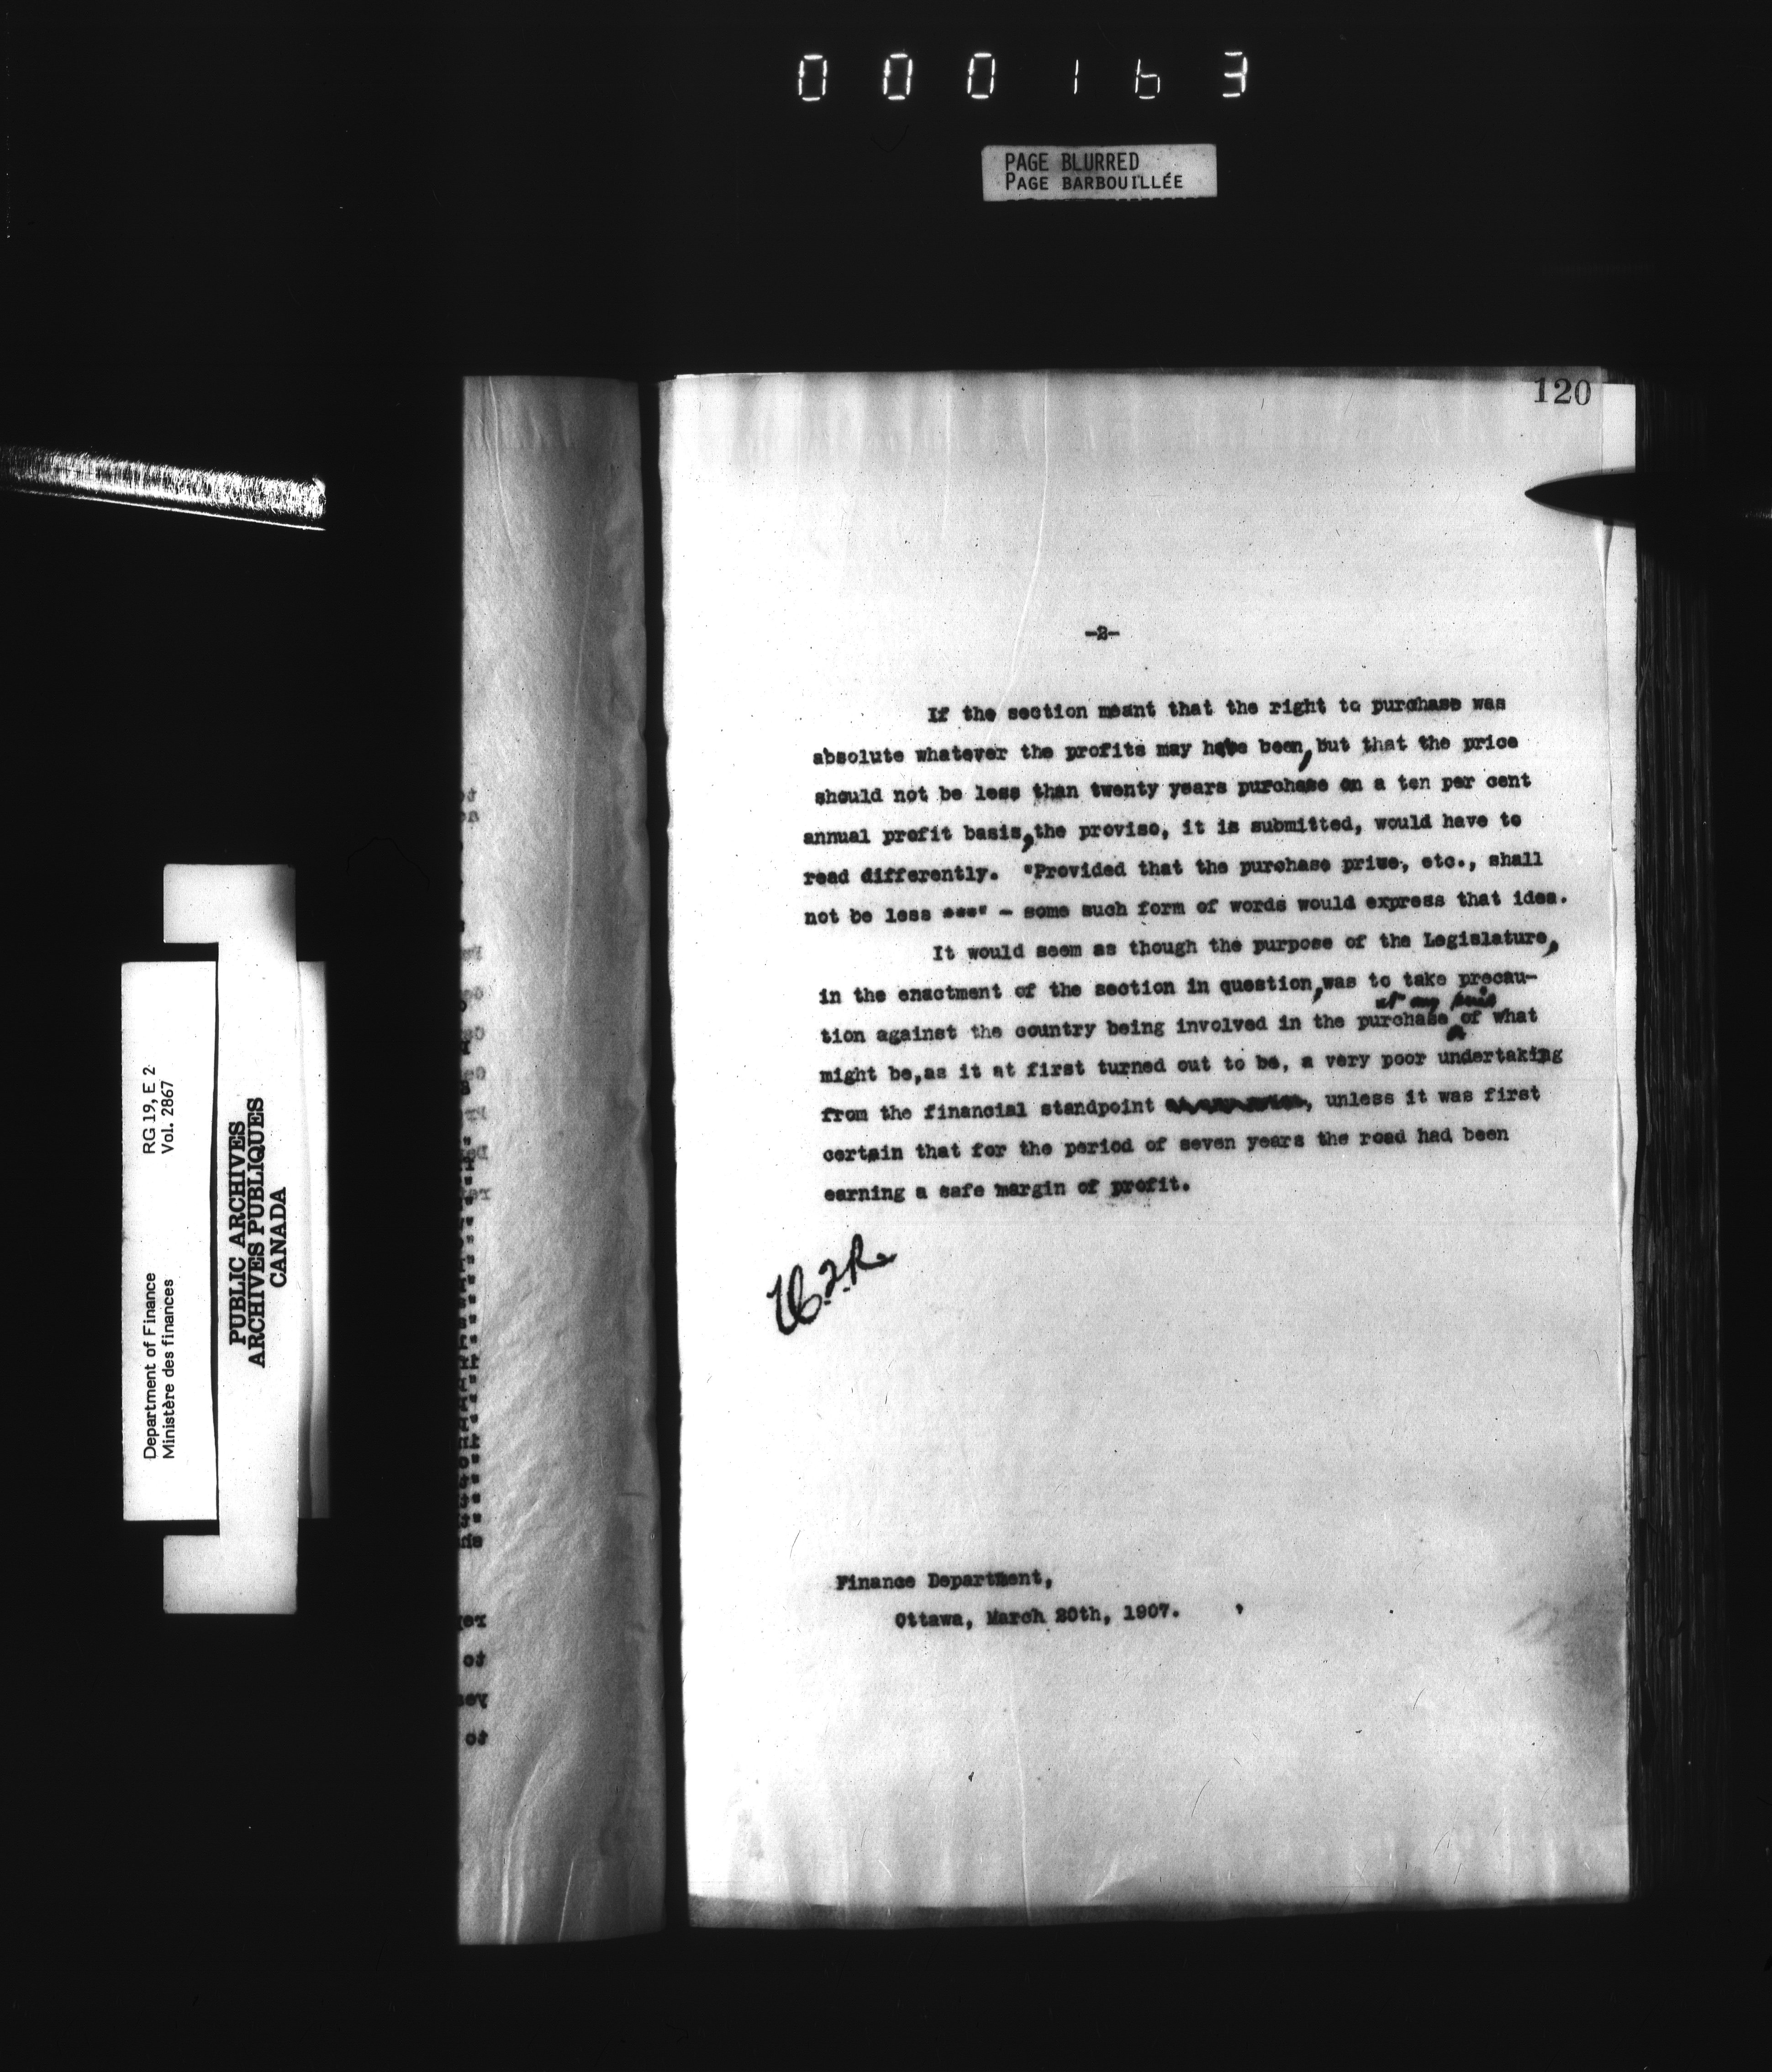 000163
PAGE BLURRED
PAGE BARBOUILLÉE
120
-2-
If the section meant that the right to purchase was
absolute whatever the profits may have been, but that the price
should not be less than twenty years purchase on a ten per cent
annual profit basis, the proviso, it is submitted, would have to
read differently. "Provided that the purchase price, etc., shall
not be less ***" - some such form of words would express that idea.
It would seem as though the purpose of the Legislature,
in the enactment of the section in question, was to take precau-
at any price
tion against the country being involved in the purchase of what
might be, as it at first turned out to be, a very poor undertaking
from the financial standpoint , unless it was first
certain that for the period of seven years the road had been
earning a safe margin of profit.
Finance Department,
Ottawa, March 20th, 1907.
RG 19, E 2
Vol. 2867
Department of Finance
Ministère des finances
PUBLIC ARCHIVES
ARCHIVES PUBLIQUES
CANADA